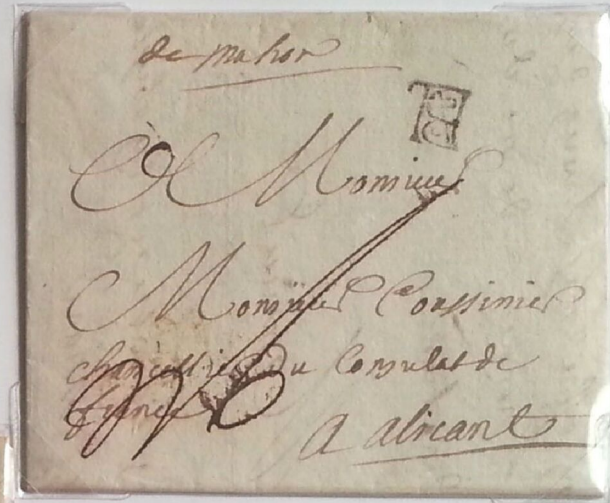 de mahon
A Monsieur
Monsieur Coussinier
chancellier du Consulat de
france
A alicant